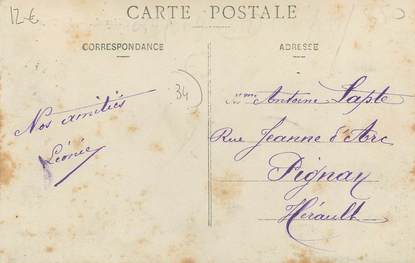 12€
CARTE POSTALE
CORRESPONDANCE
ADRESSE
34
Nos amitiés
Léonie
Mme Antoine Lapte
Rue Jeanne d'Arc
Pignan
Hérault